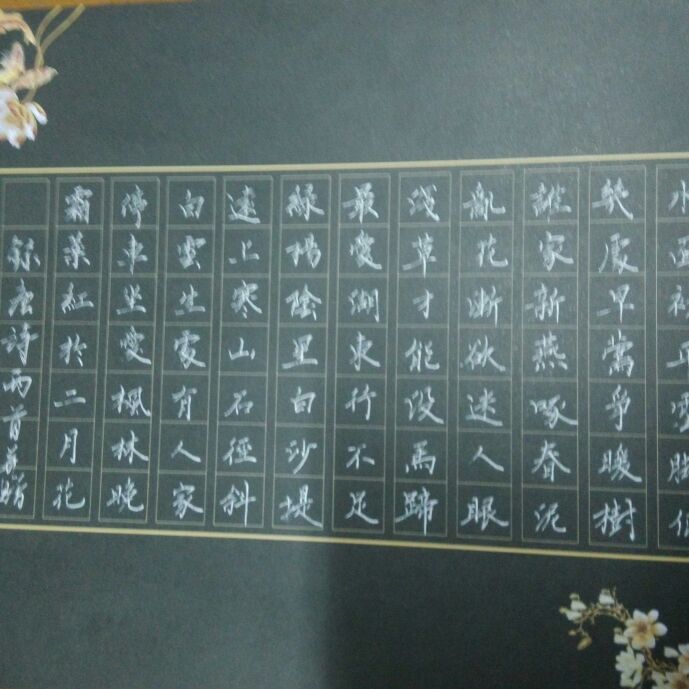 水面初平雲脚低
幾處早鶯爭暖樹
誰家新燕啄春泥
亂花漸欲迷人眼
淺草才能沒馬蹄
最愛湖東行不足
綠楊陰里白沙堤
遠上寒山石徑斜
白雲生處有人家
停車坐愛楓林晚
霜葉紅於二月花
錄唐詩兩首